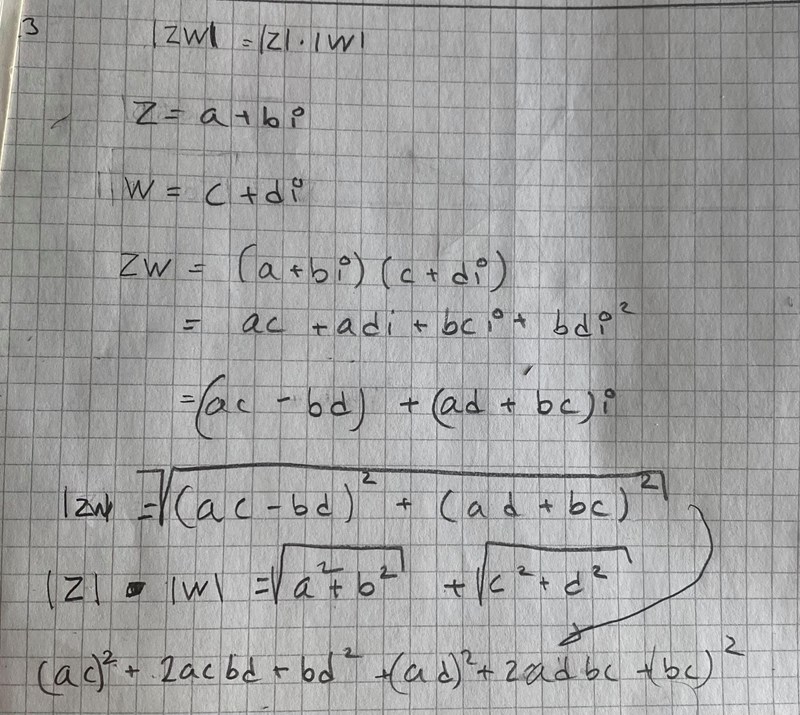 3
|ZW| = |Z|·|W|
Z = a + bi
W = c + di
ZW = (a + bi)(c + di)
= ac + adi + bci + bdi²
= (ac - bd) + (ad + bc)i
|ZW| = √((ac - bd)² + (ad + bc)²)
|Z| · |W| = √(a² + b²) + √(c² + d²)
(ac)² + 2acbd + bd² + (ad)² + 2adbc + (bc)²